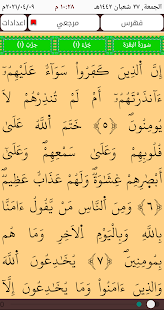 الجمعة, ٢٧ شعبان ١٤٤٢هـ ١٠:٢٨ م ٢٠٢١/٠٤/٠٩م
فهرس مرجعي اعدادات
سورة البقرة جزء (١) حزب (١)
إِنَّ ٱلَّذِينَ كَفَرُواْ سَوَآءٌ عَلَيْهِمُۥٓ
ءَآنذَرْتَهُمُۥٓ أَمْ لَمْ تُنذِرْهُمْ لَا
يُومِنُونَ ﴿٥﴾ خَتَمَ ٱللَّهُ عَلَىٰ
قُلُوبِهِمْ وَعَلَىٰ سَمْعِهِمْ وَعَلَىٰٓ
أَبْصَٰرِهِمْ غِشَٰوَةٌ وَلَهُمْ عَذَابٌ عَظِيمٌ
﴿٦﴾ وَمِنَ ٱلنَّاسِ مَنْ يَّقُولُ ءَامَنَّا
بِٱللَّهِ وَبِٱلْيَوْمِ ٱلَاخِرِ وَمَا هُم
بِمُومِنِينَ ﴿٧﴾ يُخَٰدِعُونَ ٱللَّهَ
وَٱلَّذِينَ ءَامَنُواْ وَمَا يُخَٰدِعُونَ إِلَّآ